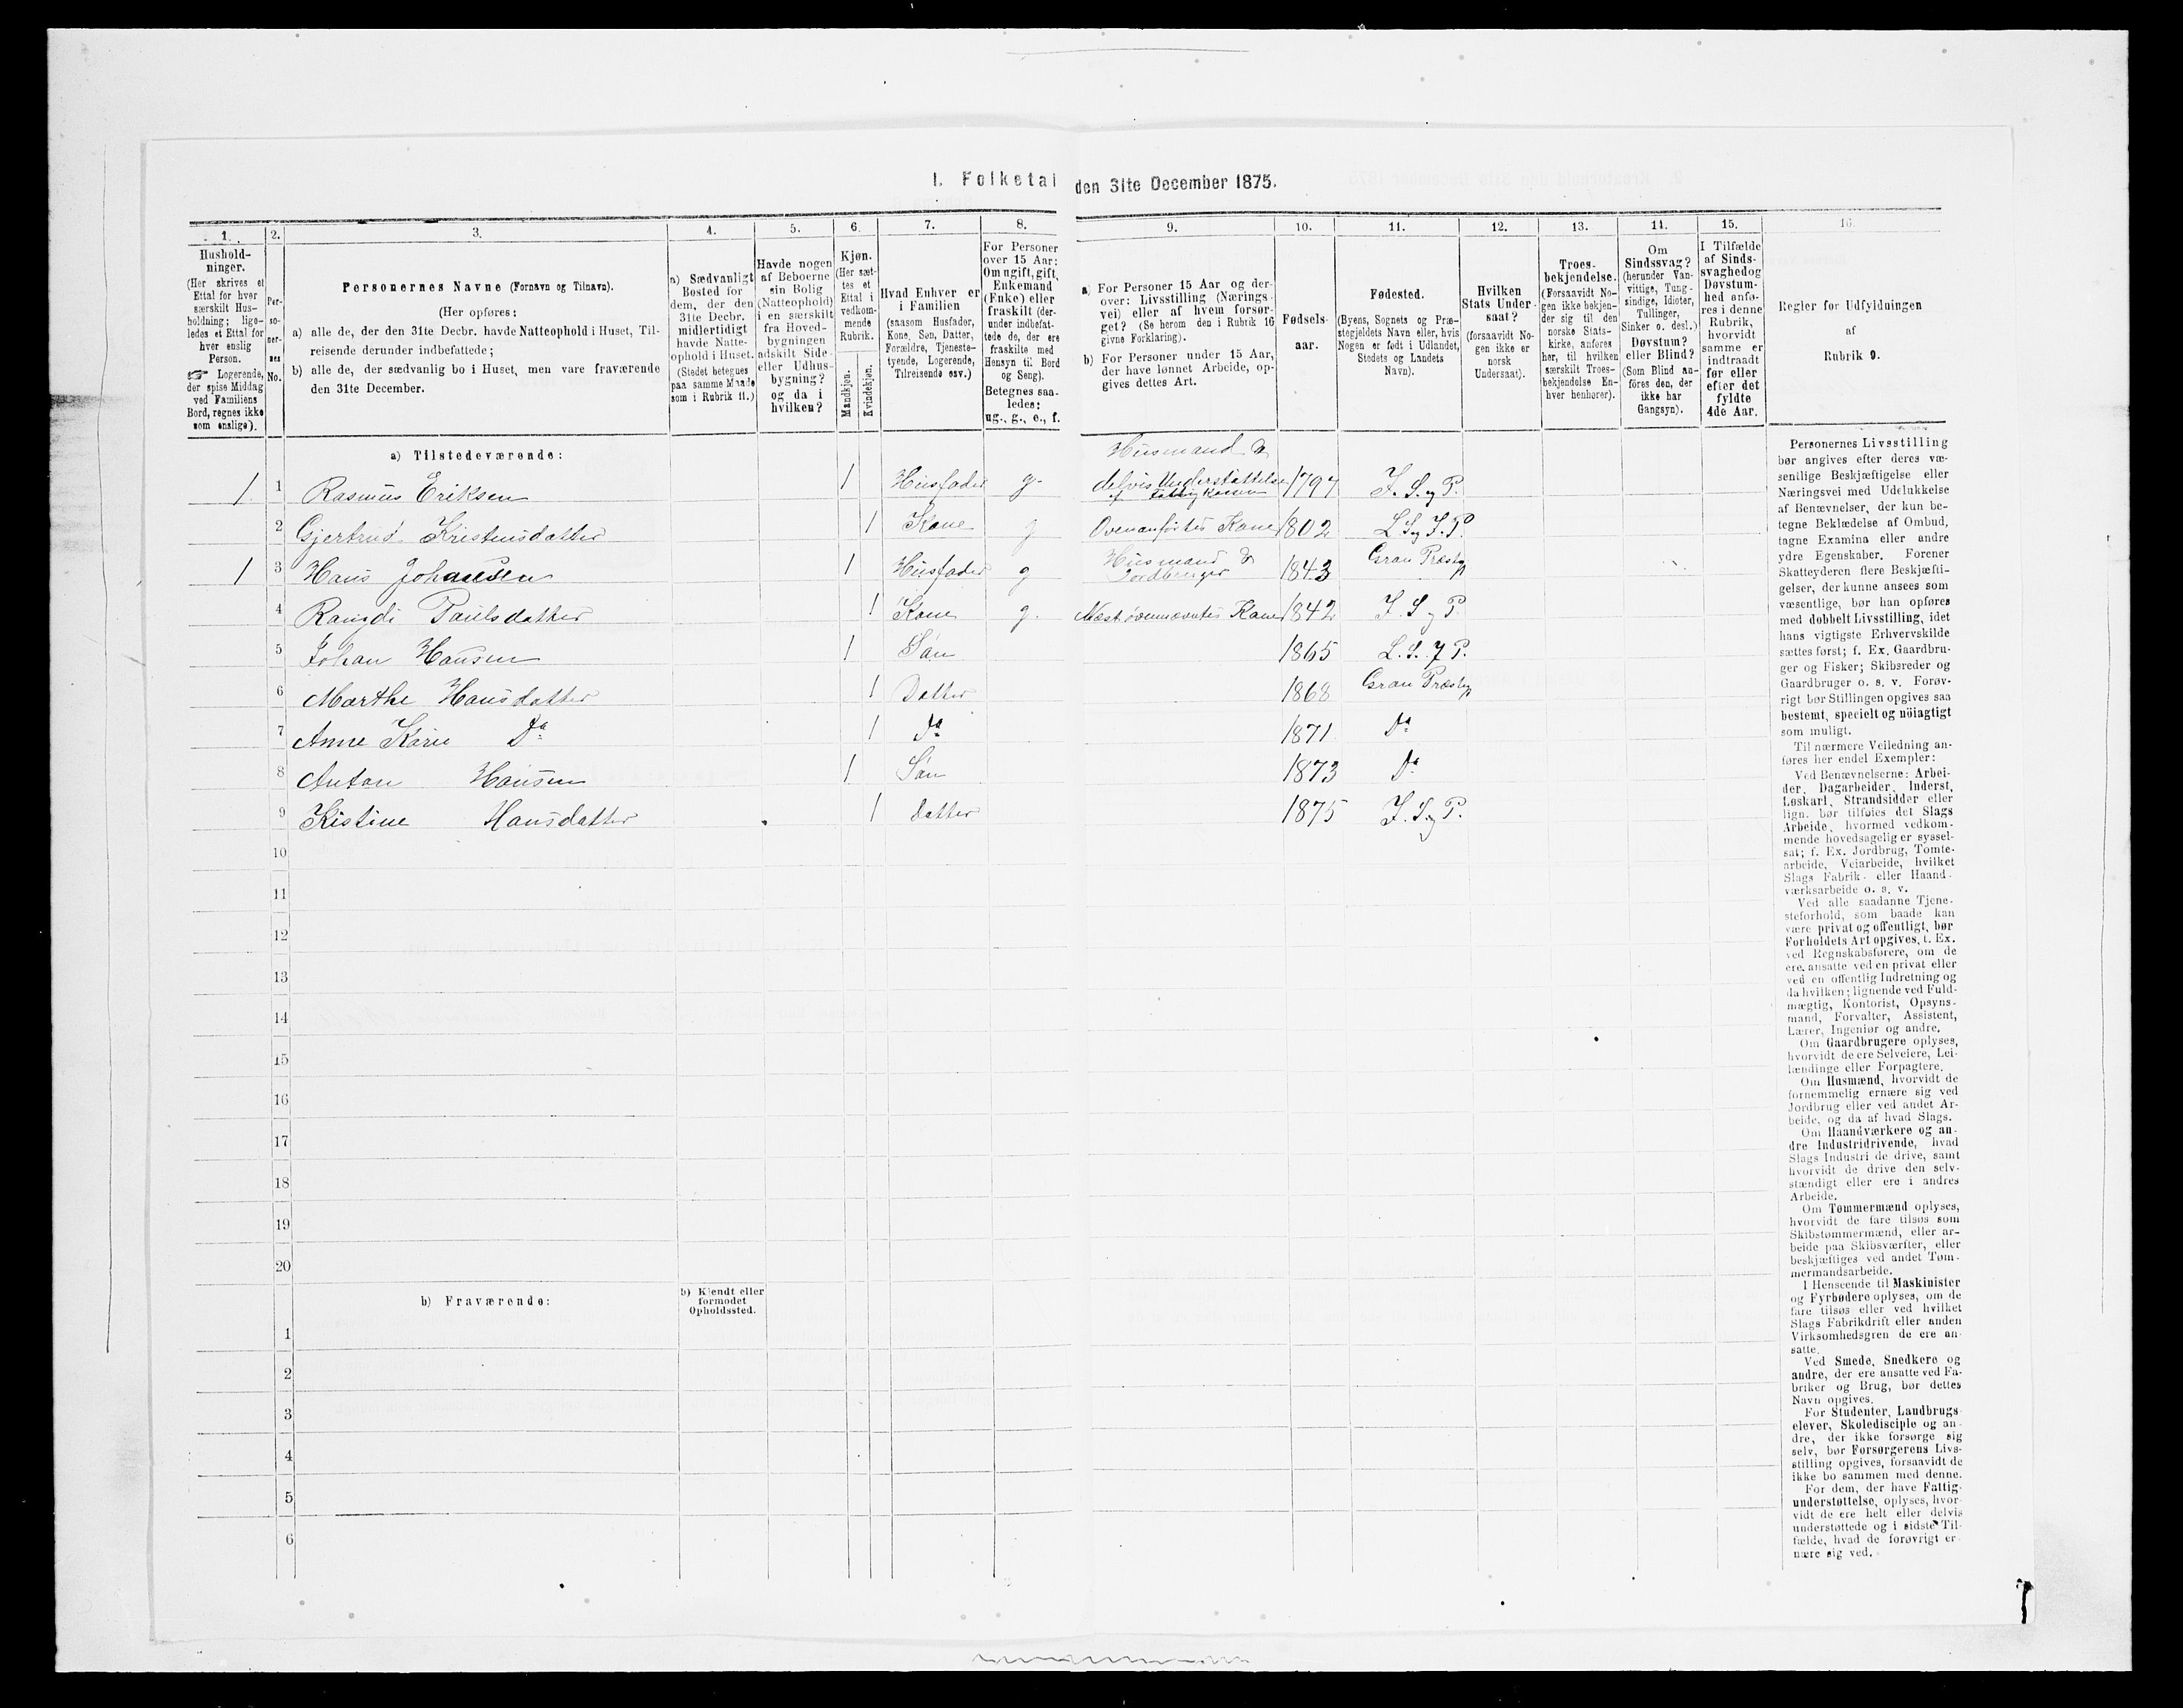 I. Folketal den 31te December 1875.
1. 2. 3. 4. 5. 6. 7. 8. 9. 10. 11. 12. 13. 14. 15. 16.
Hushold-
ninger.
(Her skrives et
Ettal for hver
særskilt Hus-
holdning; lige-
ledes et Ettal for
hver enslig
Person.
☞ Logerende,
der spise Middag
ved Familiens
Bord, regnes ikke
som enslige).
Per-
so-
ner-
nes
No.
Personernes Navne (Fornavn og Tilnavn).
(Her opføres:
a) alle de, der den 31te Decbr. havde Natteophold i Huset, Til-
reisende derunder indbefattede;
b) alle de, der sædvanlig bo i Huset, men vare fraværende
den 31te December.
a) Sædvanligt
Bosted for
dem, der den
31te Decbr.
midlertidigt
havde Natte-
ophold i Huset.
(Stedet betegnes
paa samme Maade
som i Rubrik 11.)
Havde nogen
af Beboerne
sin Bolig
(Natteophold)
i en særskilt
fra Hoved-
bygningen
adskilt Side-
eller Udhus-
bygning?
og da i
hvilken?
Kjøn.
(Her sæt-
tes et
Ettal i
vedkom-
mende
Rubrik.
Mandkjøn.
Kvindekjøn.
Hvad Enhver er
i Familien
(saasom Husfader,
Kone, Søn, Datter,
Forældre, Tjeneste-
tyende, Logerende,
Tilreisende osv.)
For Personer
over 15 Aar:
Om ugift, gift,
Enkemand
(Enke) eller
fraskilt (der-
under indbefat-
tede de, der ere
fraskilte med
Hensyn til Bord
og Seng).
Betegnes saa-
ledes:
ug., g., e., f.
a) For Personer 15 Aar og der-
over: Livsstilling (Nærings-
vei) eller af hvem forsør-
get? (Se herom den i Rubrik 16
givne Forklaring).
b) For Personer under 15 Aar,
der have lønnet Arbeide, op-
gives dettes Art.
Fødsels-
aar.
Fødested.
(Byens, Sognets og Præ-
stegjeldets Navn eller, hvis
Nogen er født i Udlandet,
Stedets og Landets
Navn).
Hvilken
Stats Under-
saat?
(forsaavidt No-
gen ikke er
norsk
Undersaat).
Troes-
bekjendelse.
(Forsaavidt No-
gen ikke bekjen-
der sig til den
norske Stats-
kirke, anføres
her, til hvilken
særskilt Troes-
bekjendelse En-
hver henhører).
Om
Sindssvag?
(herunder Van-
vittige, Tung-
sindige, Idioter,
Tullinger,
Sinker o. desl.)
Døvstum?
eller Blind?
(Som Blind an-
föres den, der
ikke har
Gangsyn).
I Tilfælde
af Sinds-
svaghed og
Døvstum-
hed anfø-
res i denne
Rubrik,
hvorvidt
samme er
indtraadt
før eller
efter det
fyldte
4de Aar.
Regler for Udfyldningen
af
Rubrik 9.
a) Tilstedeværende:
Husmand &
1 1 Rasmus Eriksen 1 Husfader g. delvis Understøttelse 1797 J. S. og P.
af Fattigkassen
2 Gjertrud Kristensdatter 1 Kone g Ovenanførtes Kone 1802 L S og J. P.
1 3 Hans Johansen 1 Husfader g Husmand & 1843 Gran Præstg
Jordbruger
4 Rangdi Paulsdatter 1 Kone g. Næst ovennævntes Kone 1842 J. S og P.
5 Johan Hansen 1 Søn 1865 L. S. J P.
6 Marthe Hansdatter 1 Datter 1868 Gran Præstg
7 Anne Karie Do 1 Do 1871 Do
8 Anton Hansen 1 Søn 1873 Do
9 Kistine Hansdatter 1 Datter 1875 J. S. og P.
10
11
12
13
14
15
16
17
18
19
20
b) Fraværende:
b) Kjendt eller
formodet
Opholdssted.
1
2
3
4
5
6
Personernes Livsstilling
bør angives efter deres væ-
senlige Beskjæftigelse eller
Næringsvei med Udelukkelse
af Benævnelser, der kun be-
tegne Beklædelse af Ombud,
tagne Examina eller andre
ydre Egenskaber. Forener
Skatteyderen flere Beskjæfti-
gelser, der kunne ansees som
væsentlige, bør han opføres
med dobbelt Livsstilling, idet
hans vigtigste Erhvervskilde
sættes først; f. Ex. Gaardbru-
ger og Fisker; Skibsreder og
Gaardbruger o. s. v. Forøv-
rigt bør Stillingen opgives saa
bestemt, specielt og nöiagtigt
som muligt.
Til nærmere Veiledning an-
føres her endel Exempler:
Ved Benævnelserne: Arbei-
der, Dagarbeider, Inderst,
Løskarl, Strandsidder eller
lign. bør tilføies det Slags
Arbeide, hvormed vedkom-
mende hovedsagelig er syssel-
sat; f. Ex. Jordbrug, Tomte-
arbeide, Veiarbeide, hvilket
Slags Fabrik- eller Haand-
værksarbeide o. s. v.
Ved alle saadanne Tjene-
steforhold, som baade kan
være privat og offentligt, bør
Forholdets Art opgives, t. Ex.
ved Regnskabsførere, om de
ere ansatte ved en privat eller
ved en offentlig Indretning og
da hvilken; lignende ved Fuld-
mægtig, Kontorist, Opsyns-
mand, Forvalter, Assistent,
Lærer, Ingeniør og andre.
Om Gaardbrugere oplyses,
hvorvidt de ere Selveiere, Lei-
lændinge eller Forpagtere.
Om Husmænd, hvorvidt de
fornemmelig ernære sig ved
Jordbrug eller ved andet Ar-
beide, og da af hvad Slags.
Om Haandværkere og an-
dre Industridrivende, hvad
Slags Industri de drive, samt
hvorvidt de drive den selv-
stændigt eller ere i andres
Arbeide.
Om Tømmermænd oplyses,
hvorvidt de fare tilsøs som
Skibstømmermænd, eller ar-
beide paa Skibsværfter, eller
beskjæftiges ved andet Tøm-
mermandsarbeide.
I Henseende til Maskinister
og Fyrbødere oplyses, om de
fare tilsøs eller ved hvilket
Slags Fabrikdrift eller anden
Virksomhedsgren de ere an-
satte.
Ved Smede, Snedkere og
andre, der ere ansatte ved Fa-
briker og Brug, bør dettes
Navn opgives.
For Studenter, Landbrugs-
elever, Skoledisciple og an-
dre, der ikke forsørge sig
selv, bør Forsørgerens Livs-
stilling opgives, forsaavidt de
ikke bo sammen med denne.
For dem, der have Fattig-
understøttelse, oplyses, hvor-
vidt de ere helt eller delvis
understøttede og i sidste Til-
fælde, hvad de forøvrigt er-
nære sig ved.